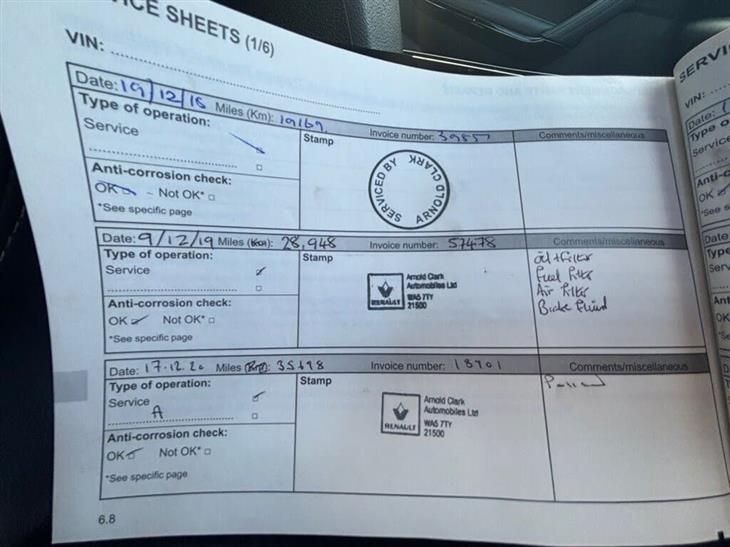 CE SHEETS (1/6)
VIN:
Date: 19/12/18 Miles (Km): 19169 Invoice number: 39857 Comments/miscellaneous
Type of operation:
Service
Stamp
SERVICED BY ARNOLD CLARK
Anti-corrosion check:
OK Not OK*
*See specific page
Date: 9/12/19 Miles (Km): 28,948 Invoice number: 57478 Comments/miscellaneous
Type of operation:
Service
Stamp
RENAULT
Arnold Clark
Automobiles Ltd
WA5 7TY
21500
Oil + Filter
Fuel Filter
Air Filter
Brake Fluid
Anti-corrosion check:
OK Not OK*
*See specific page
Date: 17.12.20 Miles Invoice number: 18901 Comments/miscellaneous
Type of operation:
Service
A
Stamp
RENAULT
Arnold Clark
Automobiles Ltd
WA5 7TY
21500
Anti-corrosion check:
OK Not OK*
*See specific page
6.8
SERVI
VIN:
Date:
Type o
Service
Anti-c
OK
*See s
Date
Typ
Serv